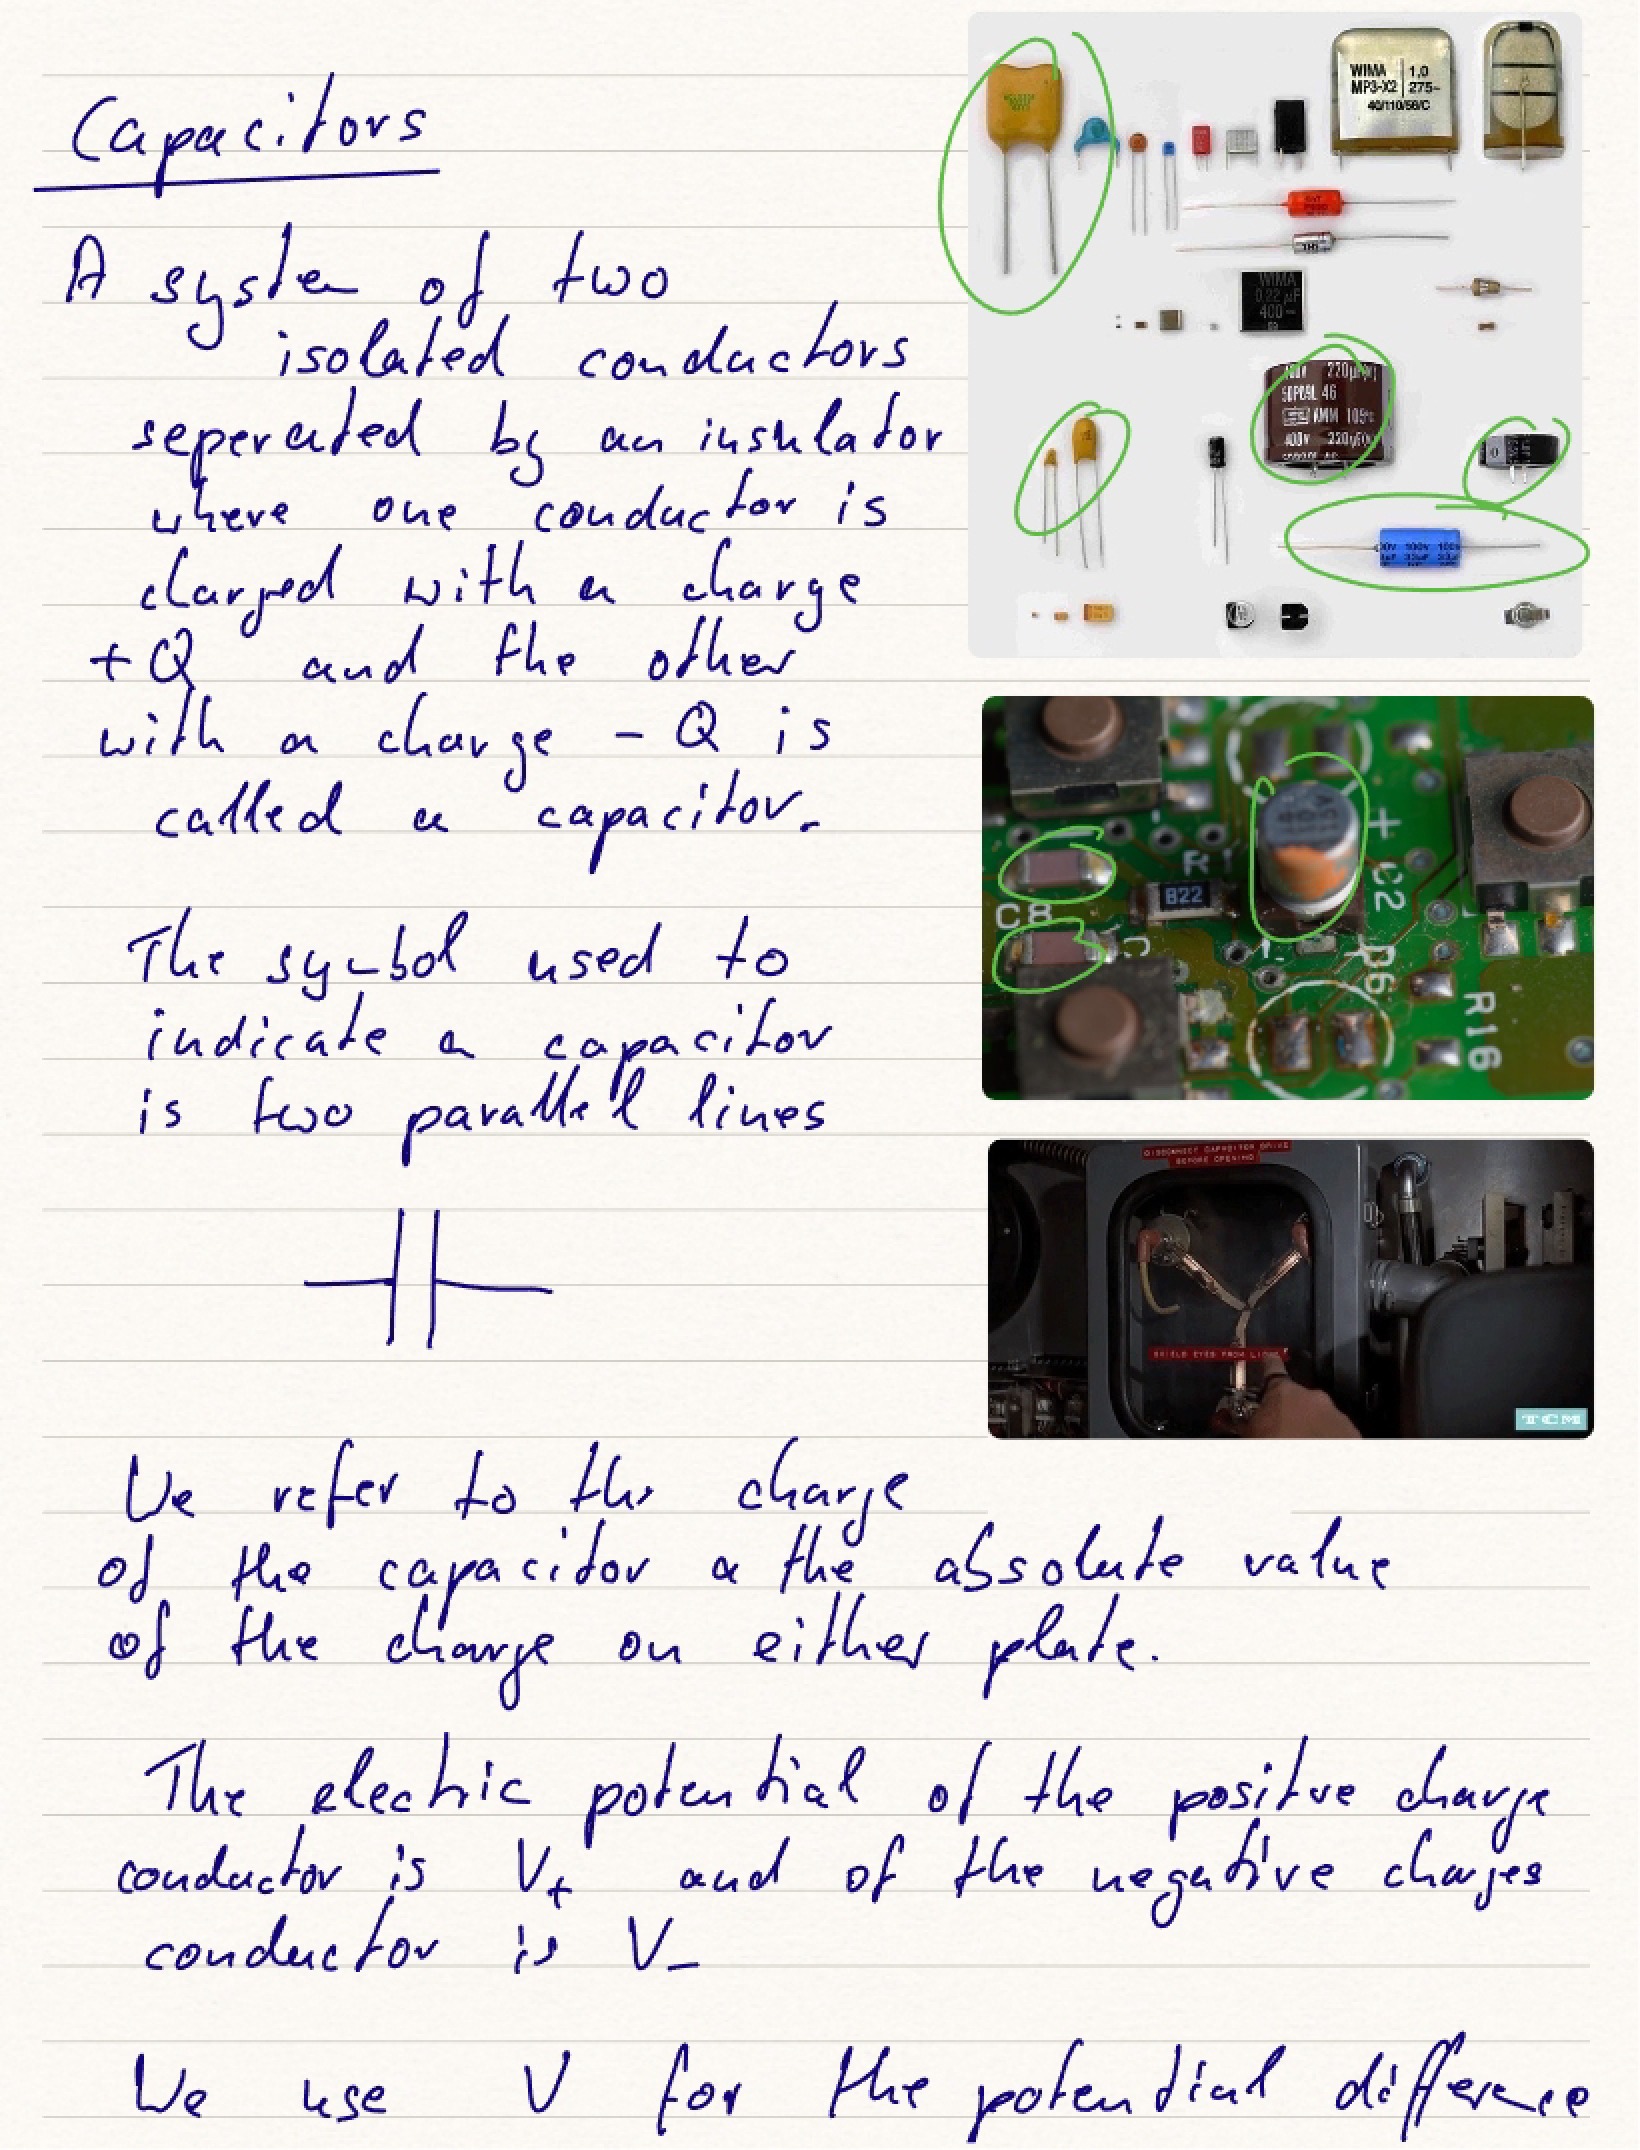 Capacitors
A system of two
isolated conductors
seperated by an insulator
where one conductor is
charged with a charge
+Q and the other
with a charge - Q is
called a capacitor.
The symbol used to
indicate a capacitor
is two parallel lines
We refer to the charge
of the capacitor a the absolute value
of the charge on either plate.
The electric potential of the positive charge
conductor is V+ and of the negative charges
conductor is V-
We use V for the potential difference
WIMA 1,0
MP3-X2 275~
40/110/56/C
WIMA
0,22 µF
400
220µF
46
AMM 105°c
400V 220µF
100V 100
C8
R1
822
+
C2
R6
R16
DISCONNECT CAPACITOR DRIVE
BEFORE OPENING
SHIELD EYES FROM LIGHT
TCM